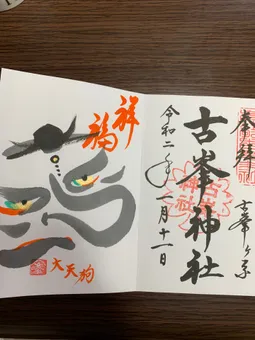 奉拝
古峯ヶ原
古峯神社
令和二年二月十一日
祥福
大天狗